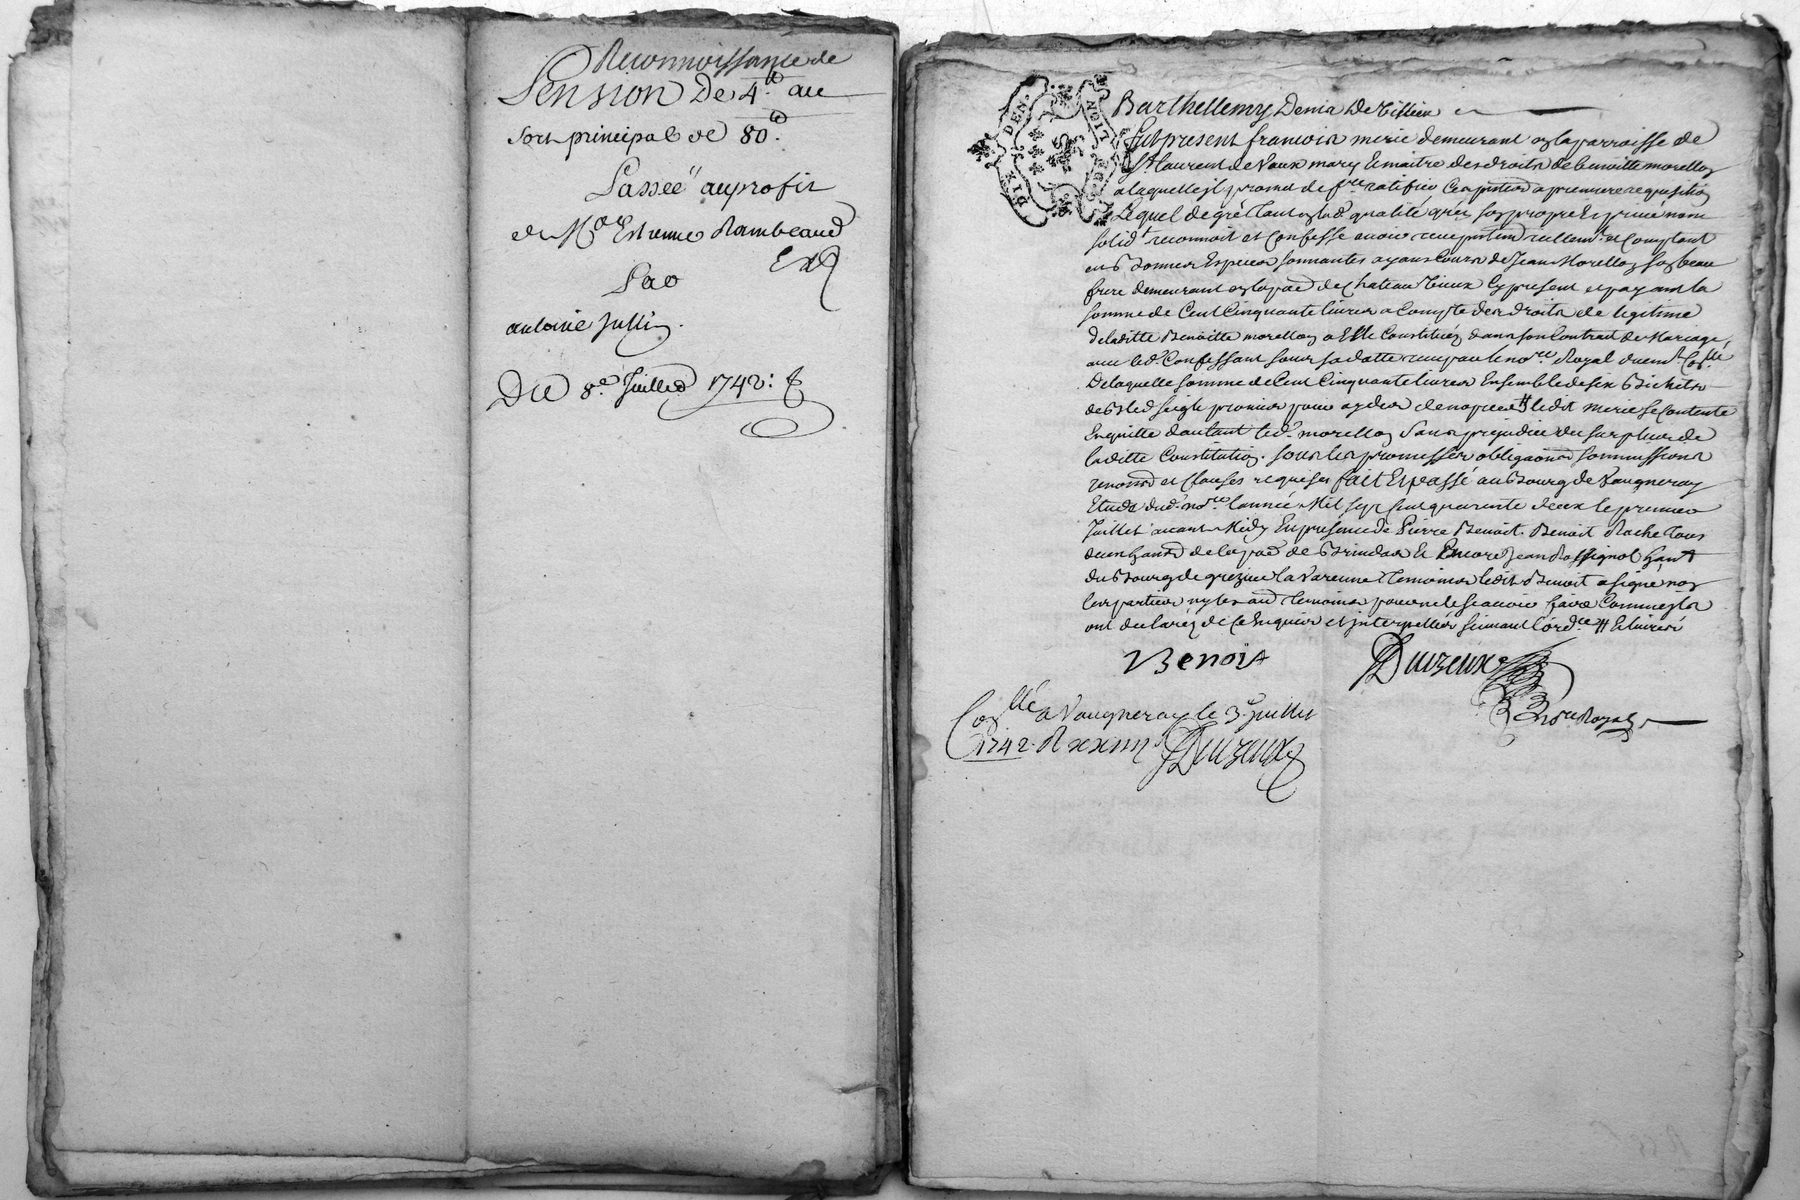 Reconnoissance de
Pension De 4ᵗᵗ au
sort principal de 80ᵗᵗ
Passeé au profit
de Mᵉ Estienne Rambeaud
Par
antoine Jullin
Du 8ᵉ Juillet 1742:
DIX DEN. LION
Barthellemy Denis
fut present francois meric demeurant en la parroisse de
St laurent de Vaux mary et maitre des droits de benoitte morellon
a laquelle il promet de fre ratifier a premiere requisition
Lequel de gré tant en lad. qualité que en son propre et privé nom
solidt reconnoit et Confesse avoir reellemt et Comptant
en bonnes Especes sonnantes ayans Cours de Jean Morellon son beau
frere demeurant en la par de chateau Vieux Cy present et payant la
somme de Cent Cinquante livres a Compte des droits de legitime
de laditte Benoitte morellon a Elle Constituez dans son Contrat de Mariage,
avec led. Confessant sous sa datte recu par le nore Royal
De laquelle somme de Cent Cinquante livres Ensemble de six Bichets
de Bled seigle ledit meric se Contente
En quitte d'autant led. morellon Sans prejudice du surplus de
laditte Constitution. sous les promesses obligaons soumissions
renons et Clauses requises fait et passé au Bourg de Vaugneray
Etude dud. nore l'année Mil sept Cent quarente deux le premier
Juillet avant Midy En presence de Pierre Benoit, Benoit Rache tous
deux hants de la par de Brindas et Encore Jean Rossignol hant
du Bourg de grezieu la Varenne temoins ledit Benoit a signé non
les parties ny les au. temoins pour ne le scavoir faire Comme ils
ont declaréz de Ce Enquis et interpellés suivant l'ordce
Benoit
Duizeux
nore Royal
Conllé a Vaugneray le 3e Juillet
1742. R Duizeux